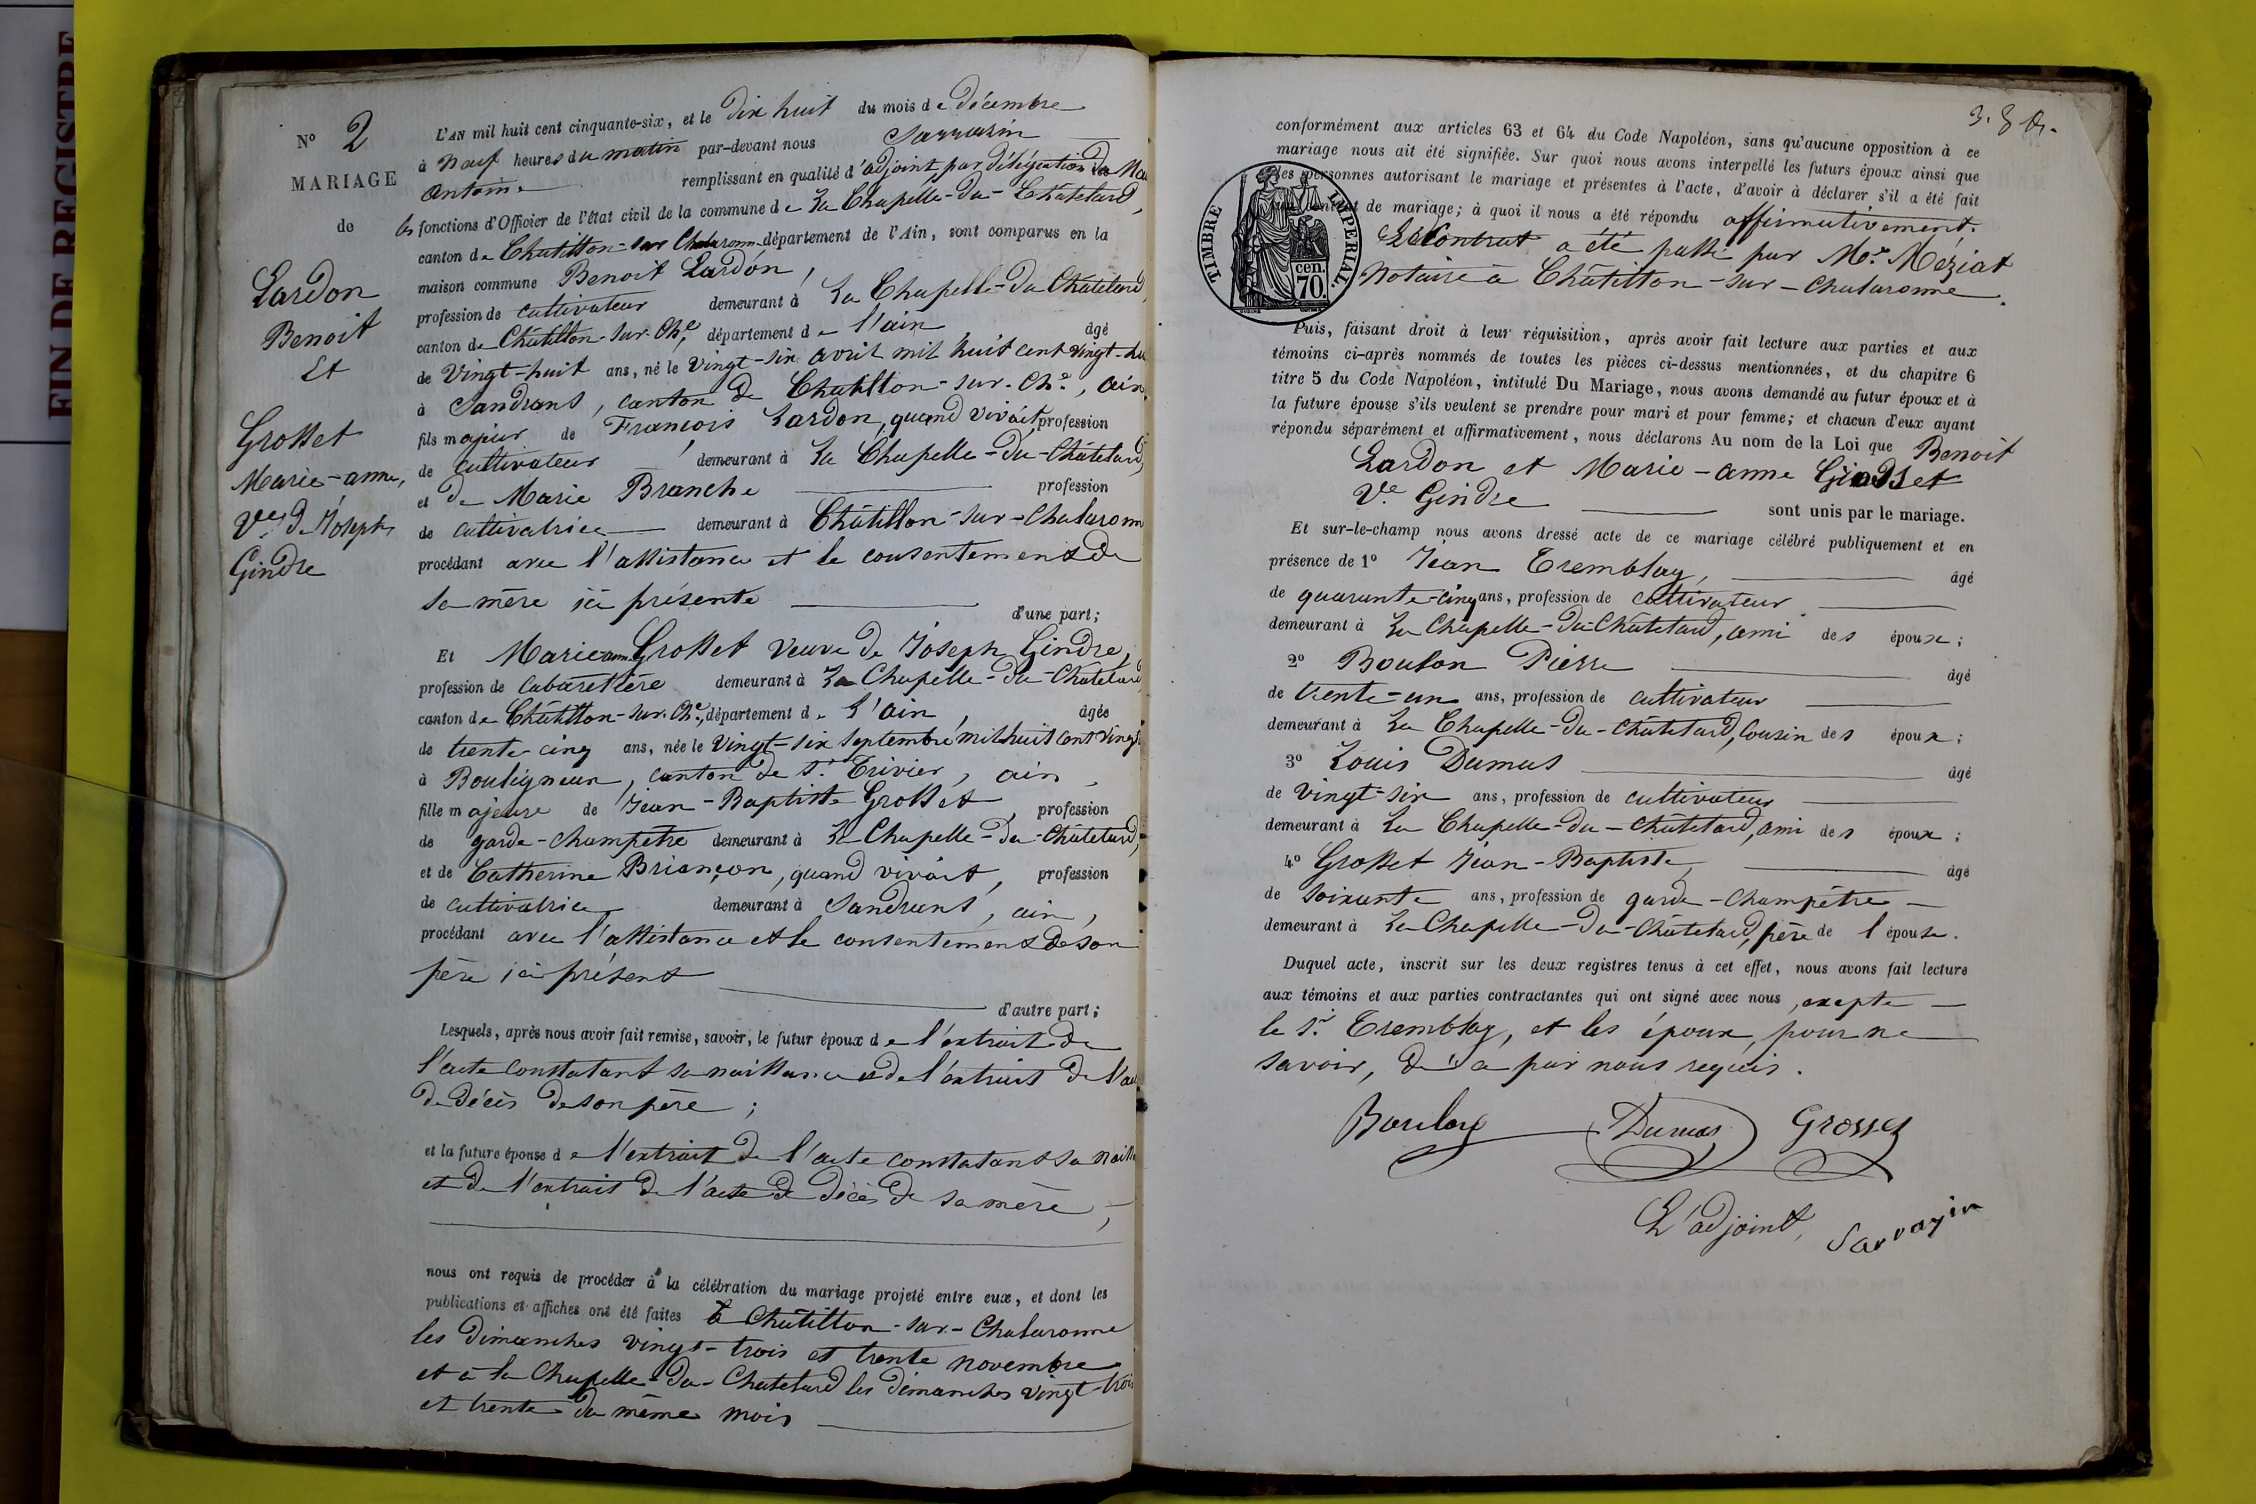 FIN DE REGISTRE
N° 2
MARIAGE
de
Lardon
Benoit
Et
Grosset
Marie-anne,
Ve. de Joseph
Gindre
L'AN mil huit cent cinquante-six, et le dix huit du mois de décembre
à neuf heures du matin par-devant nous Sarrasin
Antoine remplissant en qualité d'adjoint par délégation du
les fonctions d'Officier de l'état civil de la commune de La Chapelle-du-Châtelard,
canton de Chatillon-sur Chalaronne département de l'Ain, sont comparus en la
maison commune Benoit Lardon,
profession de cultivateur demeurant à La Chapelle-du-Châtelard,
canton de Châtillon-sur-Ch.e, département de l'ain âgé
de Vingt-huit ans, né le Vingt-six avril mil huit cent vingt-hu
à Sandrans, canton de Chatillon-sur-Ch.e, ain,
fils majeur de François Lardon, quand vivait profession
de cultivateur, demeurant à La Chapelle-du-Châtelard,
et de Marie Branche profession
de cultivatrice demeurant à Châtillon-sur-Chalaronn
procédant avec l'assistance et le consentement de
sa mère ici présente d'une part;
Et Marie anne Grosset veuve de Joseph Gindre,
profession de cabaretière demeurant à La Chapelle-du-Chatelard
canton de Châtillon-sur-Ch.e, département de L'ain, âgée
de trente cinq ans, née le vingt-six septembre mil huit cent vingt
à Bouligneux, canton de St. Trivier, ain,
fille majeure de Jean-Baptiste Grosset profession
de garde-champêtre demeurant à La Chapelle-du-Châtelard,
et de Catherine Briançon, quand vivait, profession
de cultivatrice demeurant à Sandrans, ain,
procédant avec l'assistance et le consentement de son
père ici présent
d'autre part;
Lesquels, après nous avoir fait remise, savoir, le futur époux de l'extrait de
l'acte constatant sa naissance et de l'extrait de l'ac
de décès de son père;
et la future épouse de l'extrait de l'acte constatant sa naiss
et de l'extrait de l'acte de décès de sa mère,
nous ont requis de procéder à la célébration du mariage projeté entre eux, et dont les
publications et affiches ont été faites à Châtillon-sur-Chalaronne
les dimanches vingt-trois et trente novembre
et à la Chapelle-du-Chatelard les dimanches vingt-trois
et trente du même mois
conformément aux articles 63 et 64 du Code Napoléon, sans qu'aucune opposition à ce
mariage nous ait été signifiée. Sur quoi nous avons interpellé les futurs époux ainsi que
les personnes autorisant le mariage et présentes à l'acte, d'avoir à déclarer s'il a été fait
contrat de mariage; à quoi il nous a été répondu affirmativement.
Le Contrat a été passé par Me. Méziat
Notaire à Châtillon-sur-Chalaronne.
TIMBRE IMPERIAL
cen.
70.
Puis, faisant droit à leur réquisition, après avoir fait lecture aux parties et aux
témoins ci-après nommés de toutes les pièces ci-dessus mentionnées, et du chapitre 6
titre 5 du Code Napoléon, intitulé Du Mariage, nous avons demandé au futur époux et à
la future épouse s'ils veulent se prendre pour mari et pour femme; et chacun d'eux ayant
répondu séparément et affirmativement, nous déclarons Au nom de la Loi que Benoit
Lardon et Marie-anne Grosset
Ve. Gindre sont unis par le mariage.
Et sur-le-champ nous avons dressé acte de ce mariage célébré publiquement et en
présence de 1° Jean Tremblay, âgé
de quarante-cinq ans, profession de cultivateur
demeurant à La Chapelle-du-Châtelard, ami des époux;
2° Boulon Pierre âgé
de trente-un ans, profession de cultivateur
demeurant à La Chapelle-du-Châtelard, Cousin des époux;
3° Louis Dumas âgé
de vingt-six ans, profession de cultivateur
demeurant à La Chapelle-du-Châtelard, ami des époux;
4° Grosset Jean-Baptiste âgé
de soixante ans, profession de garde-champêtre
demeurant à La Chapelle-du-Châtelard, père de l'épouse.
Duquel acte, inscrit sur les deux registres tenus à cet effet, nous avons fait lecture
aux témoins et aux parties contractantes qui ont signé avec nous, excepte
le Sr. Tremblay, et les époux, pour ne
savoir, de ce par nous requis.
Boulon Dumas Grosset
L'adjoint, Sarrazin